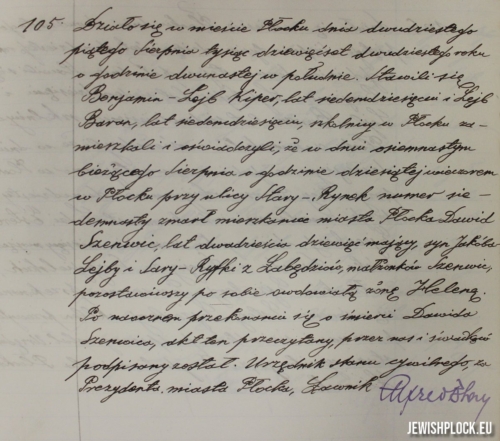 105. Działo się w mieście Płocku dnia dwudziestego
piątego Sierpnia tysiąc dziewięćset dwudziestego roku
o godzinie dwunastej w południe. Stawili się
Benjamin-Lejb Kiper, lat siedemdziesięciu i Lejb
Baran, lat siedemdziesięciu, szkolnicy w Płocku za-
mieszkali i oświadczyli, że w dniu osiemnastym
bieżącego Sierpnia o godzinie dziesiątej wieczorem
w Płocku przy ulicy Stary-Rynek numer sie-
demnasty zmarł mieszkaniec miasta Płocka Dawid
Szenwic, lat dwadzieścia dziewięć mający, syn Jakóba
Lejby i Sary-Ryfki z Łabędziów, małżonków Szenwic,
pozostawiwszy po sobie owdowiałą żonę Helenę.
Po naocznem przekonaniu się o śmierci Dawida
Szenwica, akt ten przeczytany, przez nas i świadków
podpisany został. Urzędnik stanu cywilnego, za
Prezydenta miasta Płocka, Ławnik Alfred
JEWISHPLOCK.EU